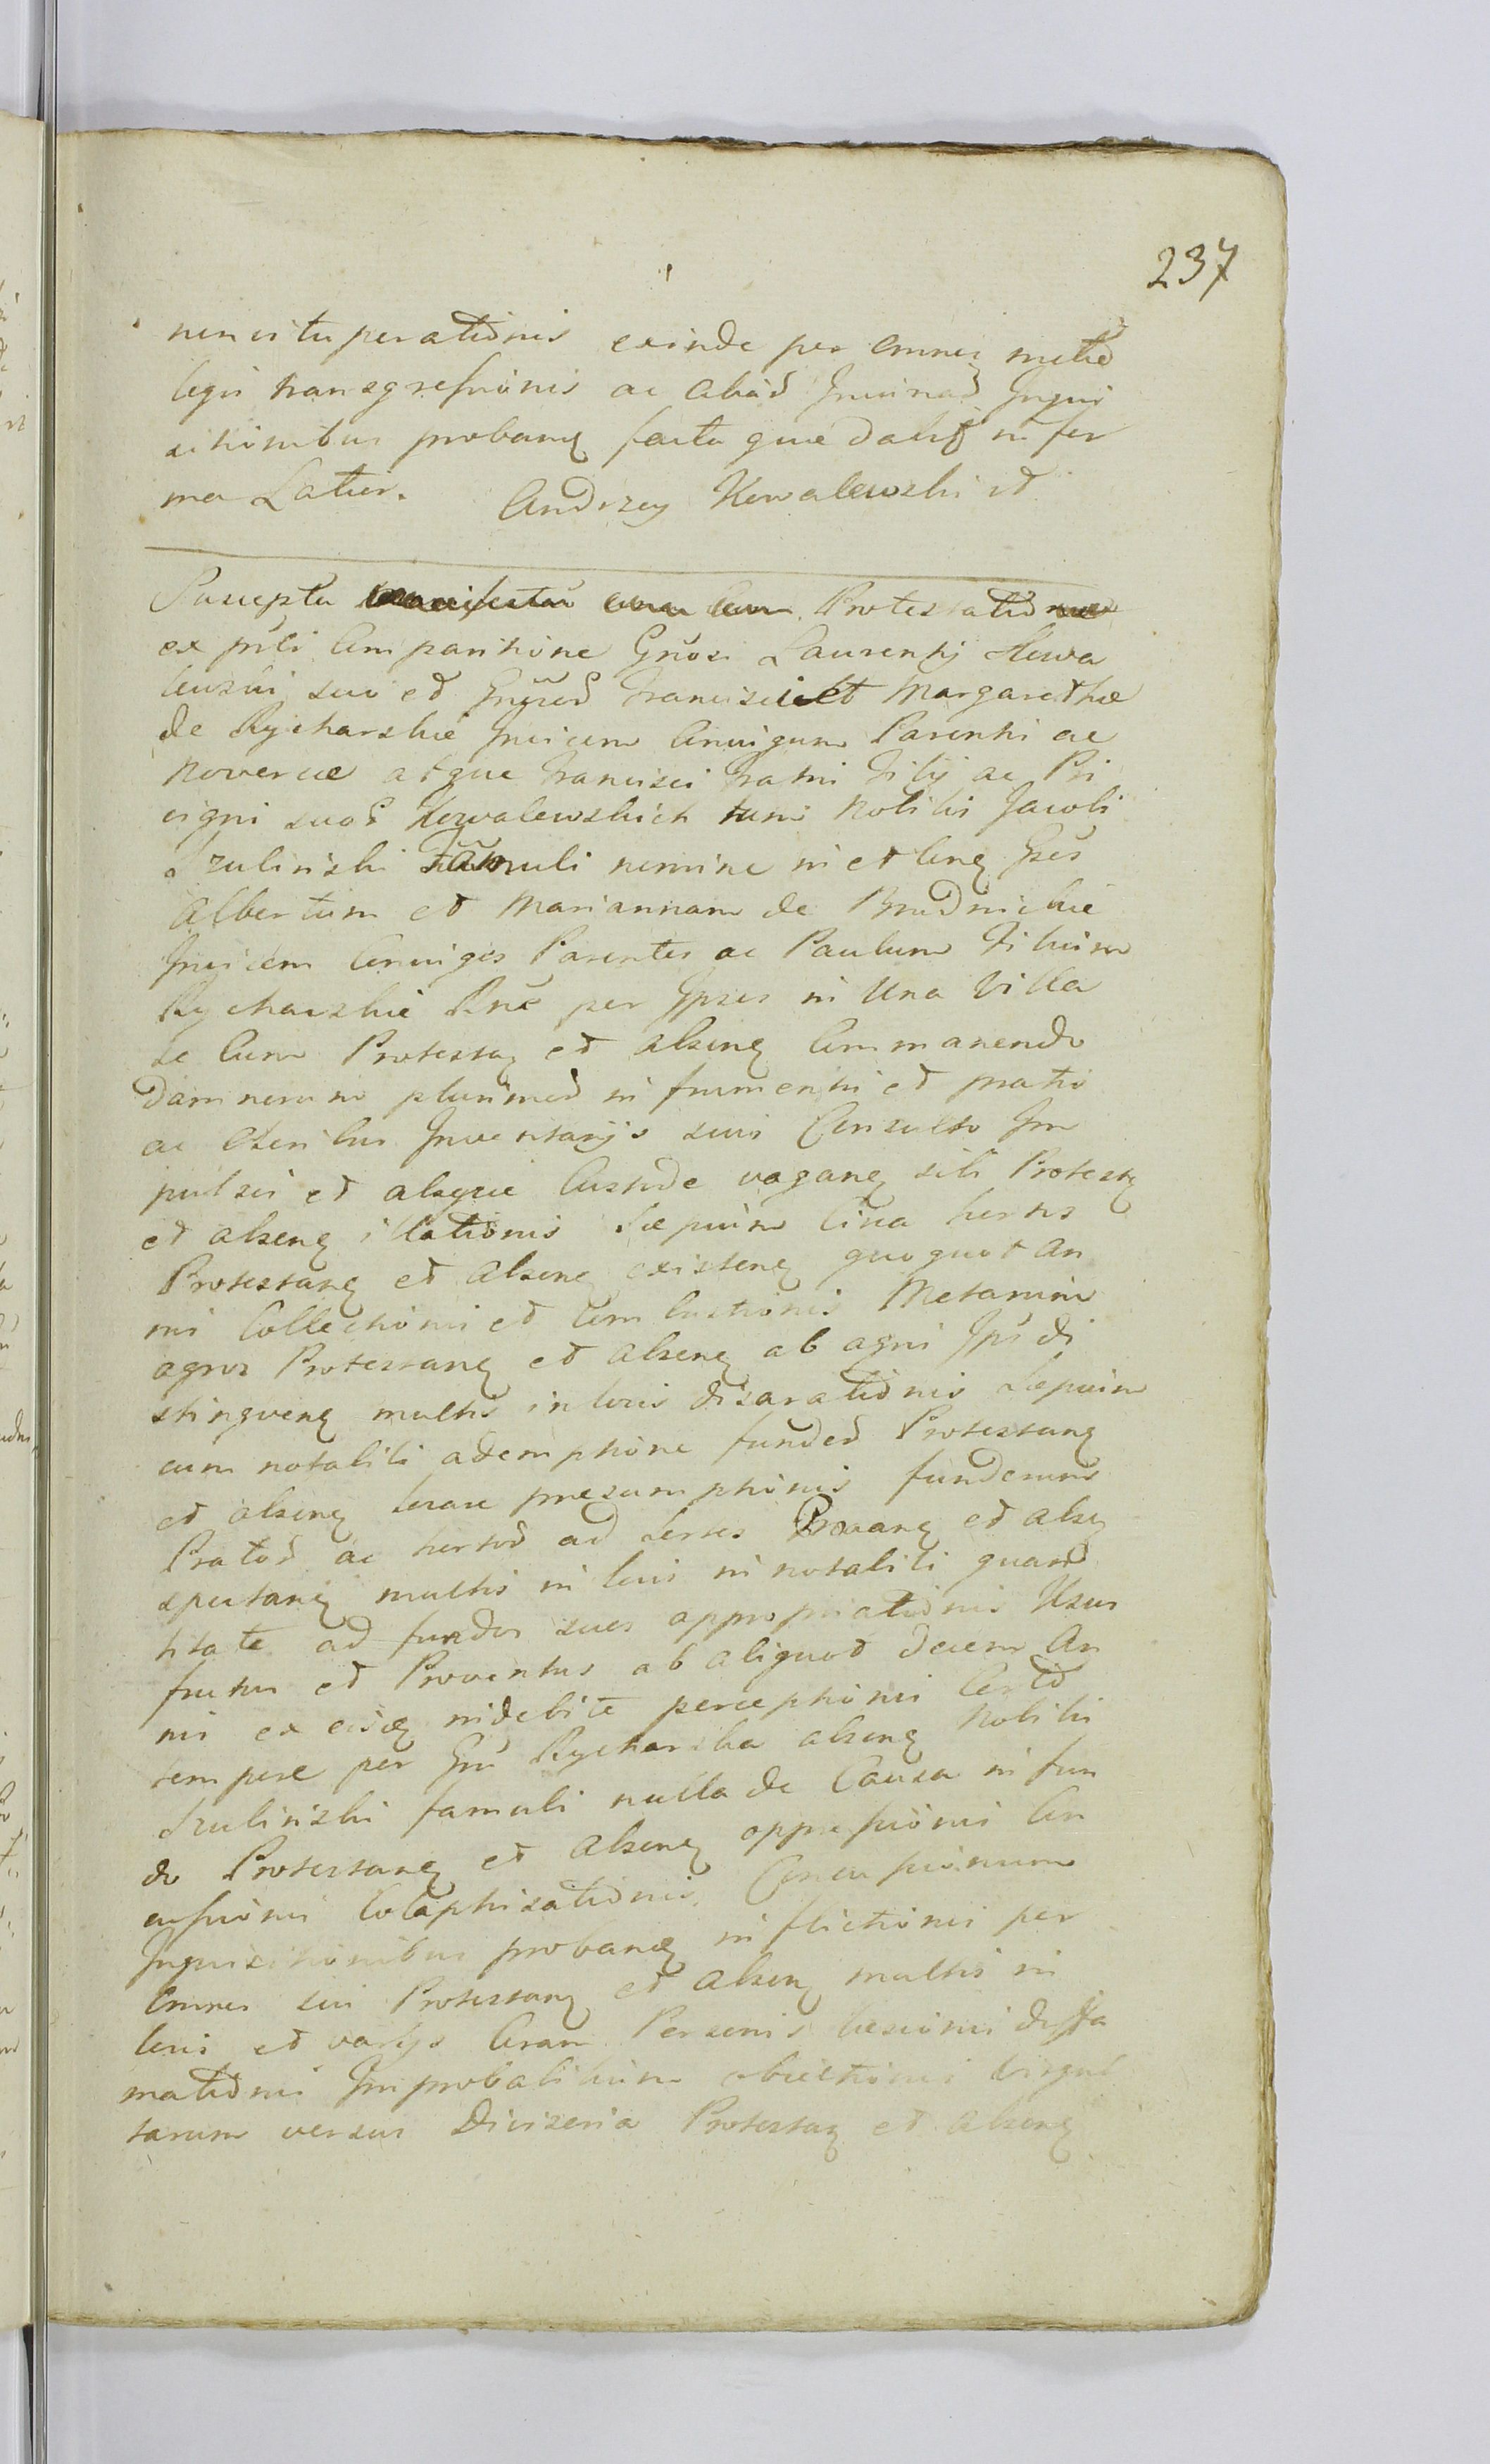 237
nen vituperationis exinde per omnes
legis transgressionis ac aliad Inqui
sitionibus proband facta quæ dabit in for
ma Latior. Andrzey Kowalewski
Suscepta Protestatio
ex parti comparitione Gnosi Laurentij Kowa
lewski sui et Francisci et Margarethæ
de Rycharskie Invicem Coniugum Parenti ac
Novercæ atque Francisci Fratri Filij ac Pri
vigni suor Kowalewskich tum Nobilis Jacobi
Szulinski Famuli nomine in et cong Gsos
Albertum et Mariannam de Brudnickie
Invicem Coniuges Parentes ac Paulum Filium
Rycharskie per Ipsos in Una Villa
se cum Protestang et abseng Commanendo
damnorum plurimod in frumentis et pratis
ac Oleribus Inventarijs suis Consulto Im
pulsis et absque Custode vagang sibi Protestang
et abseng illationis Sæpium Circa hortos
Protestang et abseng existeng quoquot An
nis Collectionis et Combustionis Metarum
agros Protestang et abseng ab agris Ips di
stingveng multis in locis disarationis Sæpium
cum notabili ademptione fundod Protestang
et abseng locare præsumptionis fundorum
Pratod ac hortod ad Sortes et abseng
spectang multis in locis in notabili quan
titate ad fundos suos appropriationis Usus
fructus et Proventus ab aliquod decem An
nis ex eisdg indebite perceptionis Certo
tempore per Gn Rycharska abseng Nobilis
Szulinski famuli nulla de Causa in fun
do Protestang et abseng oppressionis Con
cussionis Colaphisationis Concussionum
Inquisitionibus probang inflictionis per
Omnes sui Protestang et abseng multis in
locis et varijs Coram Personis læsionis diffa
mationis Improbabilium obiectionis Virgul
tarum versus Divisoria Protestang et abseng